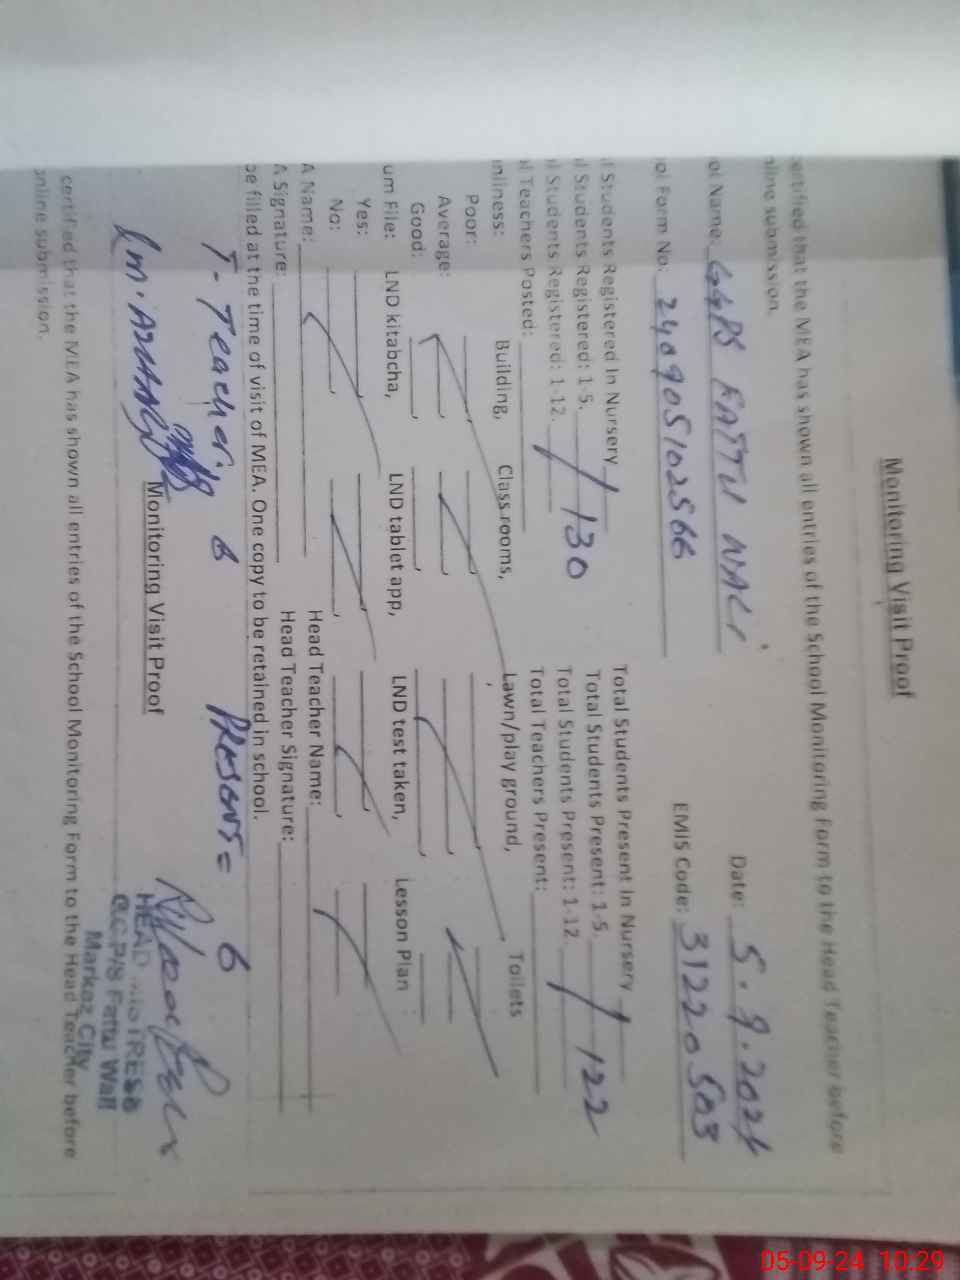 Monitoring Visit Proof
ertified that the MEA has shown all entries of the School Monitoring Form to the Head Teacher before
nline submission.
ol Name: GGPS FATTU WALI Date: 5.9.2024
ol Form No: 240905102566 EMIS Code: 31220503
l Students Registered In Nursery Total Students Present In Nursery
l Students Registered: 1-5. 130 Total Students Present: 1-5. 122
l Students Registered: 1-12. Total Students Present: 1-12.
l Teachers Posted: Total Teachers Present:
nliness: Building, Class rooms, Lawn/play ground, Toilets
Poor:
Average:
Good:
um File: LND kitabcha, LND tablet app, LND test taken, Lesson Plan
Yes:
No:
A Name: Head Teacher Name:
A Signature: Head Teacher Signature:
be filled at the time of visit of MEA. One copy to be retained in school.
T- Teacher. 6 Present= 6
HEAD MISTRESS
G.G.P/S Fattu Wali
Markaz City
Monitoring Visit Proof
certified that the MEA has shown all entries of the School Monitoring Form to the Head Teacher before
online submission.
05-09-24 10:29